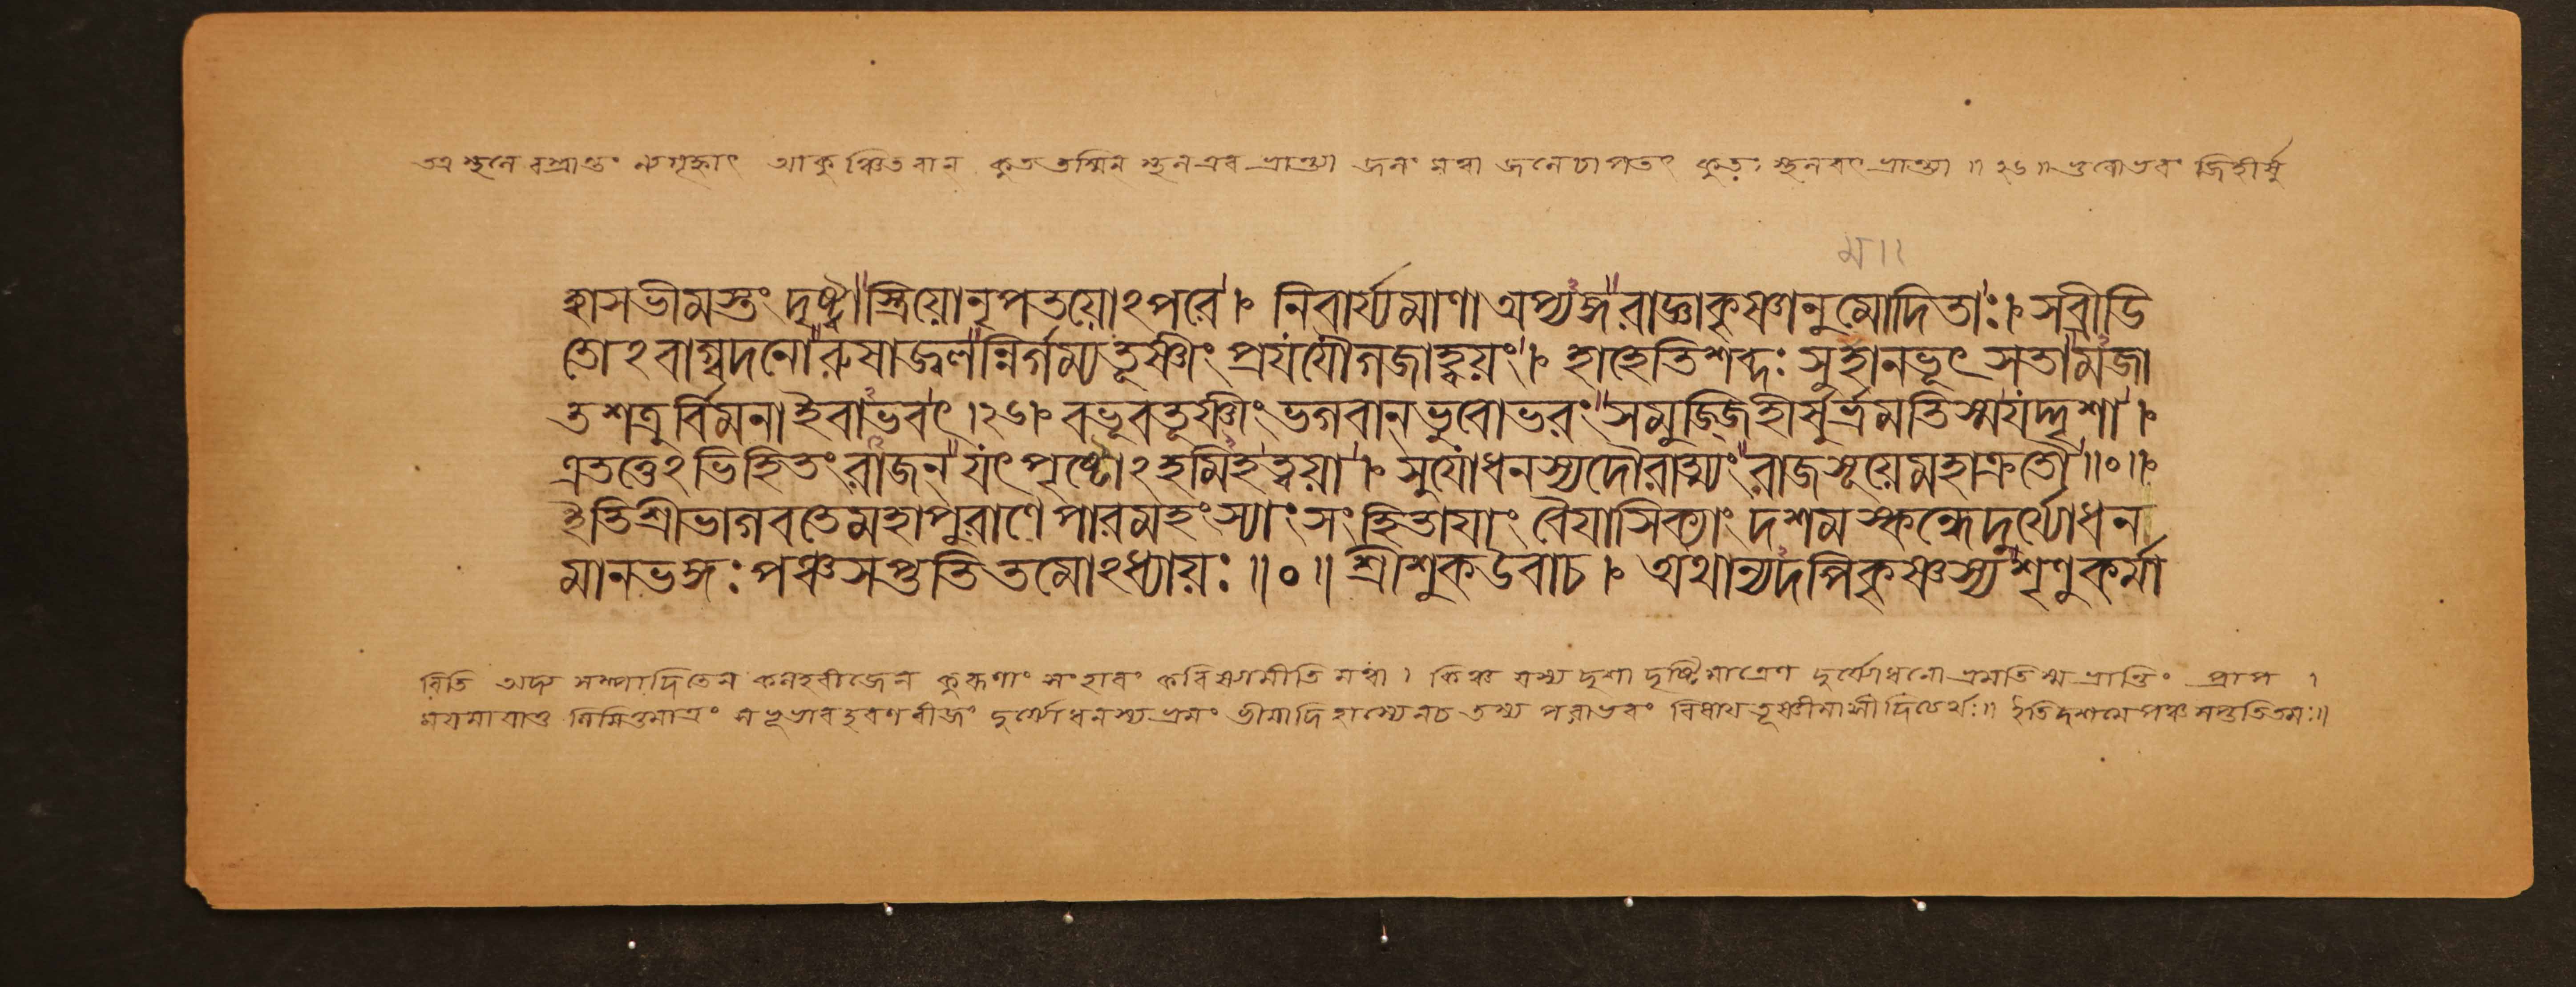 তত্র স্থলে বস্ত্রান্তং ন্যগৃহ্ণাৎ আকুঞ্চিতবান্ কুত তস্মিন্ স্থল এব ভ্রান্ত্যা জলং মত্বা জলেচাপতৎ কুতঃ স্থলবৎ ভ্রান্ত্যা ॥ ২৬ ॥ ভুবোভরং জিহীর্ষু
ম॥
হাসভীমস্তং দৃষ্ট্বা স্ত্রিয়োনৃপতয়োঽপরে । নিবার্য্যমাণা অপ্যঙ্গরাজ্ঞাকৃষ্ণানুমোদিতাঃ । সব্রীডি
তোঽবাগ্বদনোরুষাজ্বলন্নির্গম্যতূষ্ণীং প্রযযৌগজাহ্বয়ং । হাহেতিশব্দঃ সুমহানভূৎ সতামজা
তশত্রুর্বিমনাইবাভবৎ ।২৬। বভূবতূষ্ণীং ভগবানভুবোভরং সমুজ্জিহীর্ষুর্ভ্রমতিস্মযদ্দৃশা ।
এতত্তেঽভিহিতং রাজন্ যৎপৃষ্টোঽহমিহত্বয়া । সুযোধনস্যদৌরাত্ম্যং রাজসূয়েমহাক্রতৌ ॥০॥
ইতিশ্রীভাগবতেমহাপুরাণে পারমহংস্যাং সংহিতাযাং বৈযাসিক্যাং দশমস্কন্ধেদুর্য্যোধন
মানভঙ্গঃ পঞ্চসপ্ততিতমোঽধ্যায়ঃ ॥০॥ শ্রীশুকউবাচ । অথান্যদপিকৃষ্ণস্য শৃণুকর্মা
রিতি অদ্য সম্পাদিতেন কলহবীজেন কুরূণাং সংহারং করিষ্যামীতি মত্বা । কিঞ্চ যস্য দৃশা দৃষ্টিমাত্রেণ দুর্য্যোধনো ভ্রমতিস্ম ভ্রান্তিং প্রাপ ।
ময়মায়াতু নিমিত্তমাত্রং স ভূভারহরণ বীজং দুর্য্যোধনস্য ভ্রমং ভীমাদি হাস্যেনচ তস্য পরাভবং বিধায তূষ্ণীমাসীদিত্যর্থঃ ॥ ইতিদশমে পঞ্চসপ্ততিতমঃ ॥